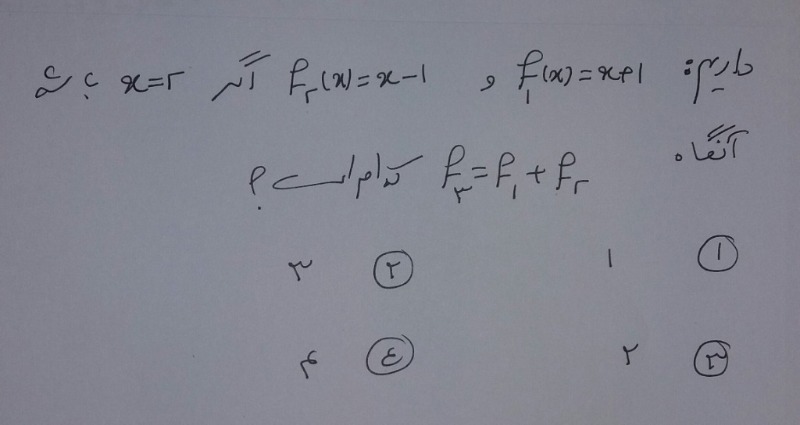 داریم: f₁(x)=x+1 و f₂(x)=x-1 اگر x=۲ باشد
آنگاه f₃=f₁+f₂ کدام است؟
① ۱ ② ۳
③ ۲ ④ ۴